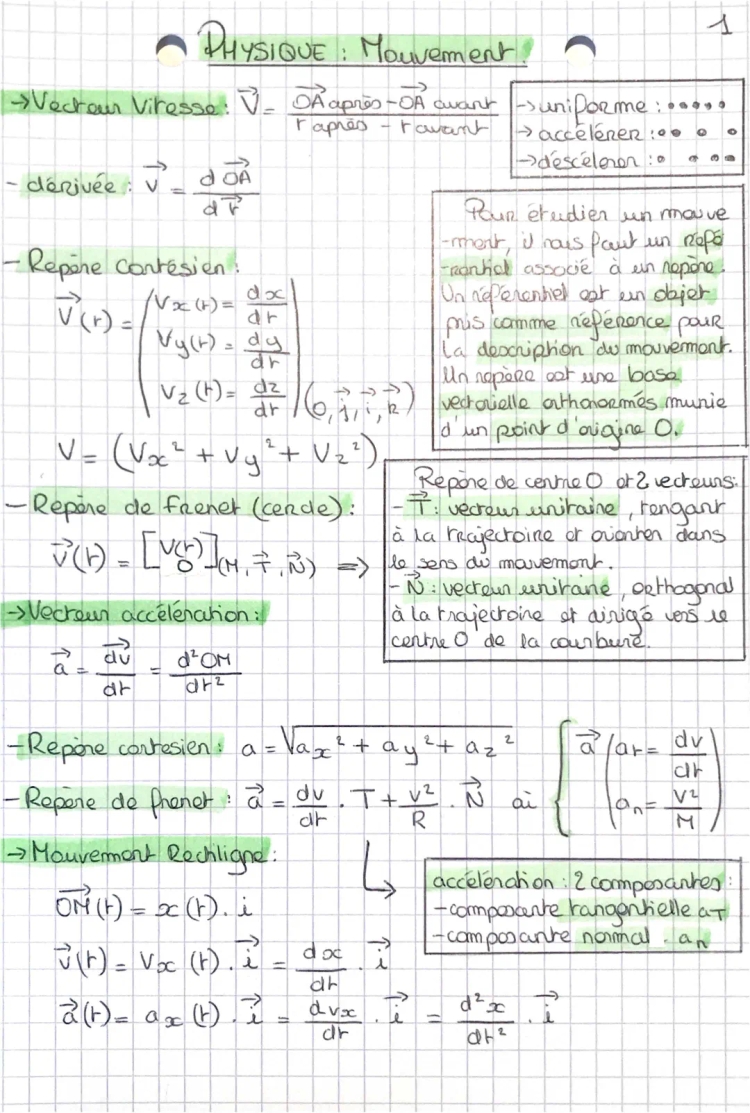 1
PHYSIQUE : Mouvement.
→ Vecteur Vitesse : V⃗ = (OA⃗ après - OA⃗ avant) / (t après - t avant)
→ uniforme : •••••
→ accélérer : •• • •
→ déscélerer : • • •••
- dérivée : v⃗ = dOA⃗ / dt⃗
Pour étudier un mouve
-ment, il nous faut un réfé
-rentiel associé à un repère.
Un référentiel est un objet
pris comme référence pour
la description du mouvement.
Un repère est une base
vectorielle orthonormés munie
d'un point d'origine O.
- Repère cartésien :
V⃗(t) = ( Vx(t) = dx/dt
Vy(t) = dy/dt
Vz(t) = dz/dt ) (O, j⃗, i⃗, k⃗)
V = (Vx² + Vy² + Vz²)
- Repère de frenet (cercle) :
V⃗(t) = [V(t) 0] (M, T⃗, N⃗) ⇒
Repère de centre O et 2 vecteurs:
- T⃗ : vecteur unitaire, tengant
à la trajectoire et orienter dans
le sens du mouvement.
- N⃗ : vecteur unitaire, orthogonal
à la trajectoire et dirigé vers le
centre O de la courbure.
→ Vecteur accélération :
a⃗ = dv⃗/dt = d²OM/dt²
- Repère cartesien : a = √(ax² + ay² + az²)
- Repère de frenet : a⃗ = dv/dt . T + v²/R . N⃗ ai { a⃗ ( at = dv/dt
an = v²/M )
→ Mouvement Rectiligne :
OM⃗(t) = x(t). i
v⃗(t) = Vx (t). i⃗ = dx/dt . i⃗
a⃗(t) = ax (t). i⃗ = dvx/dt . i⃗ = d²x/dt² . i⃗
accélération : 2 composantes :
- composante tangentielle aT
- composante normal . an